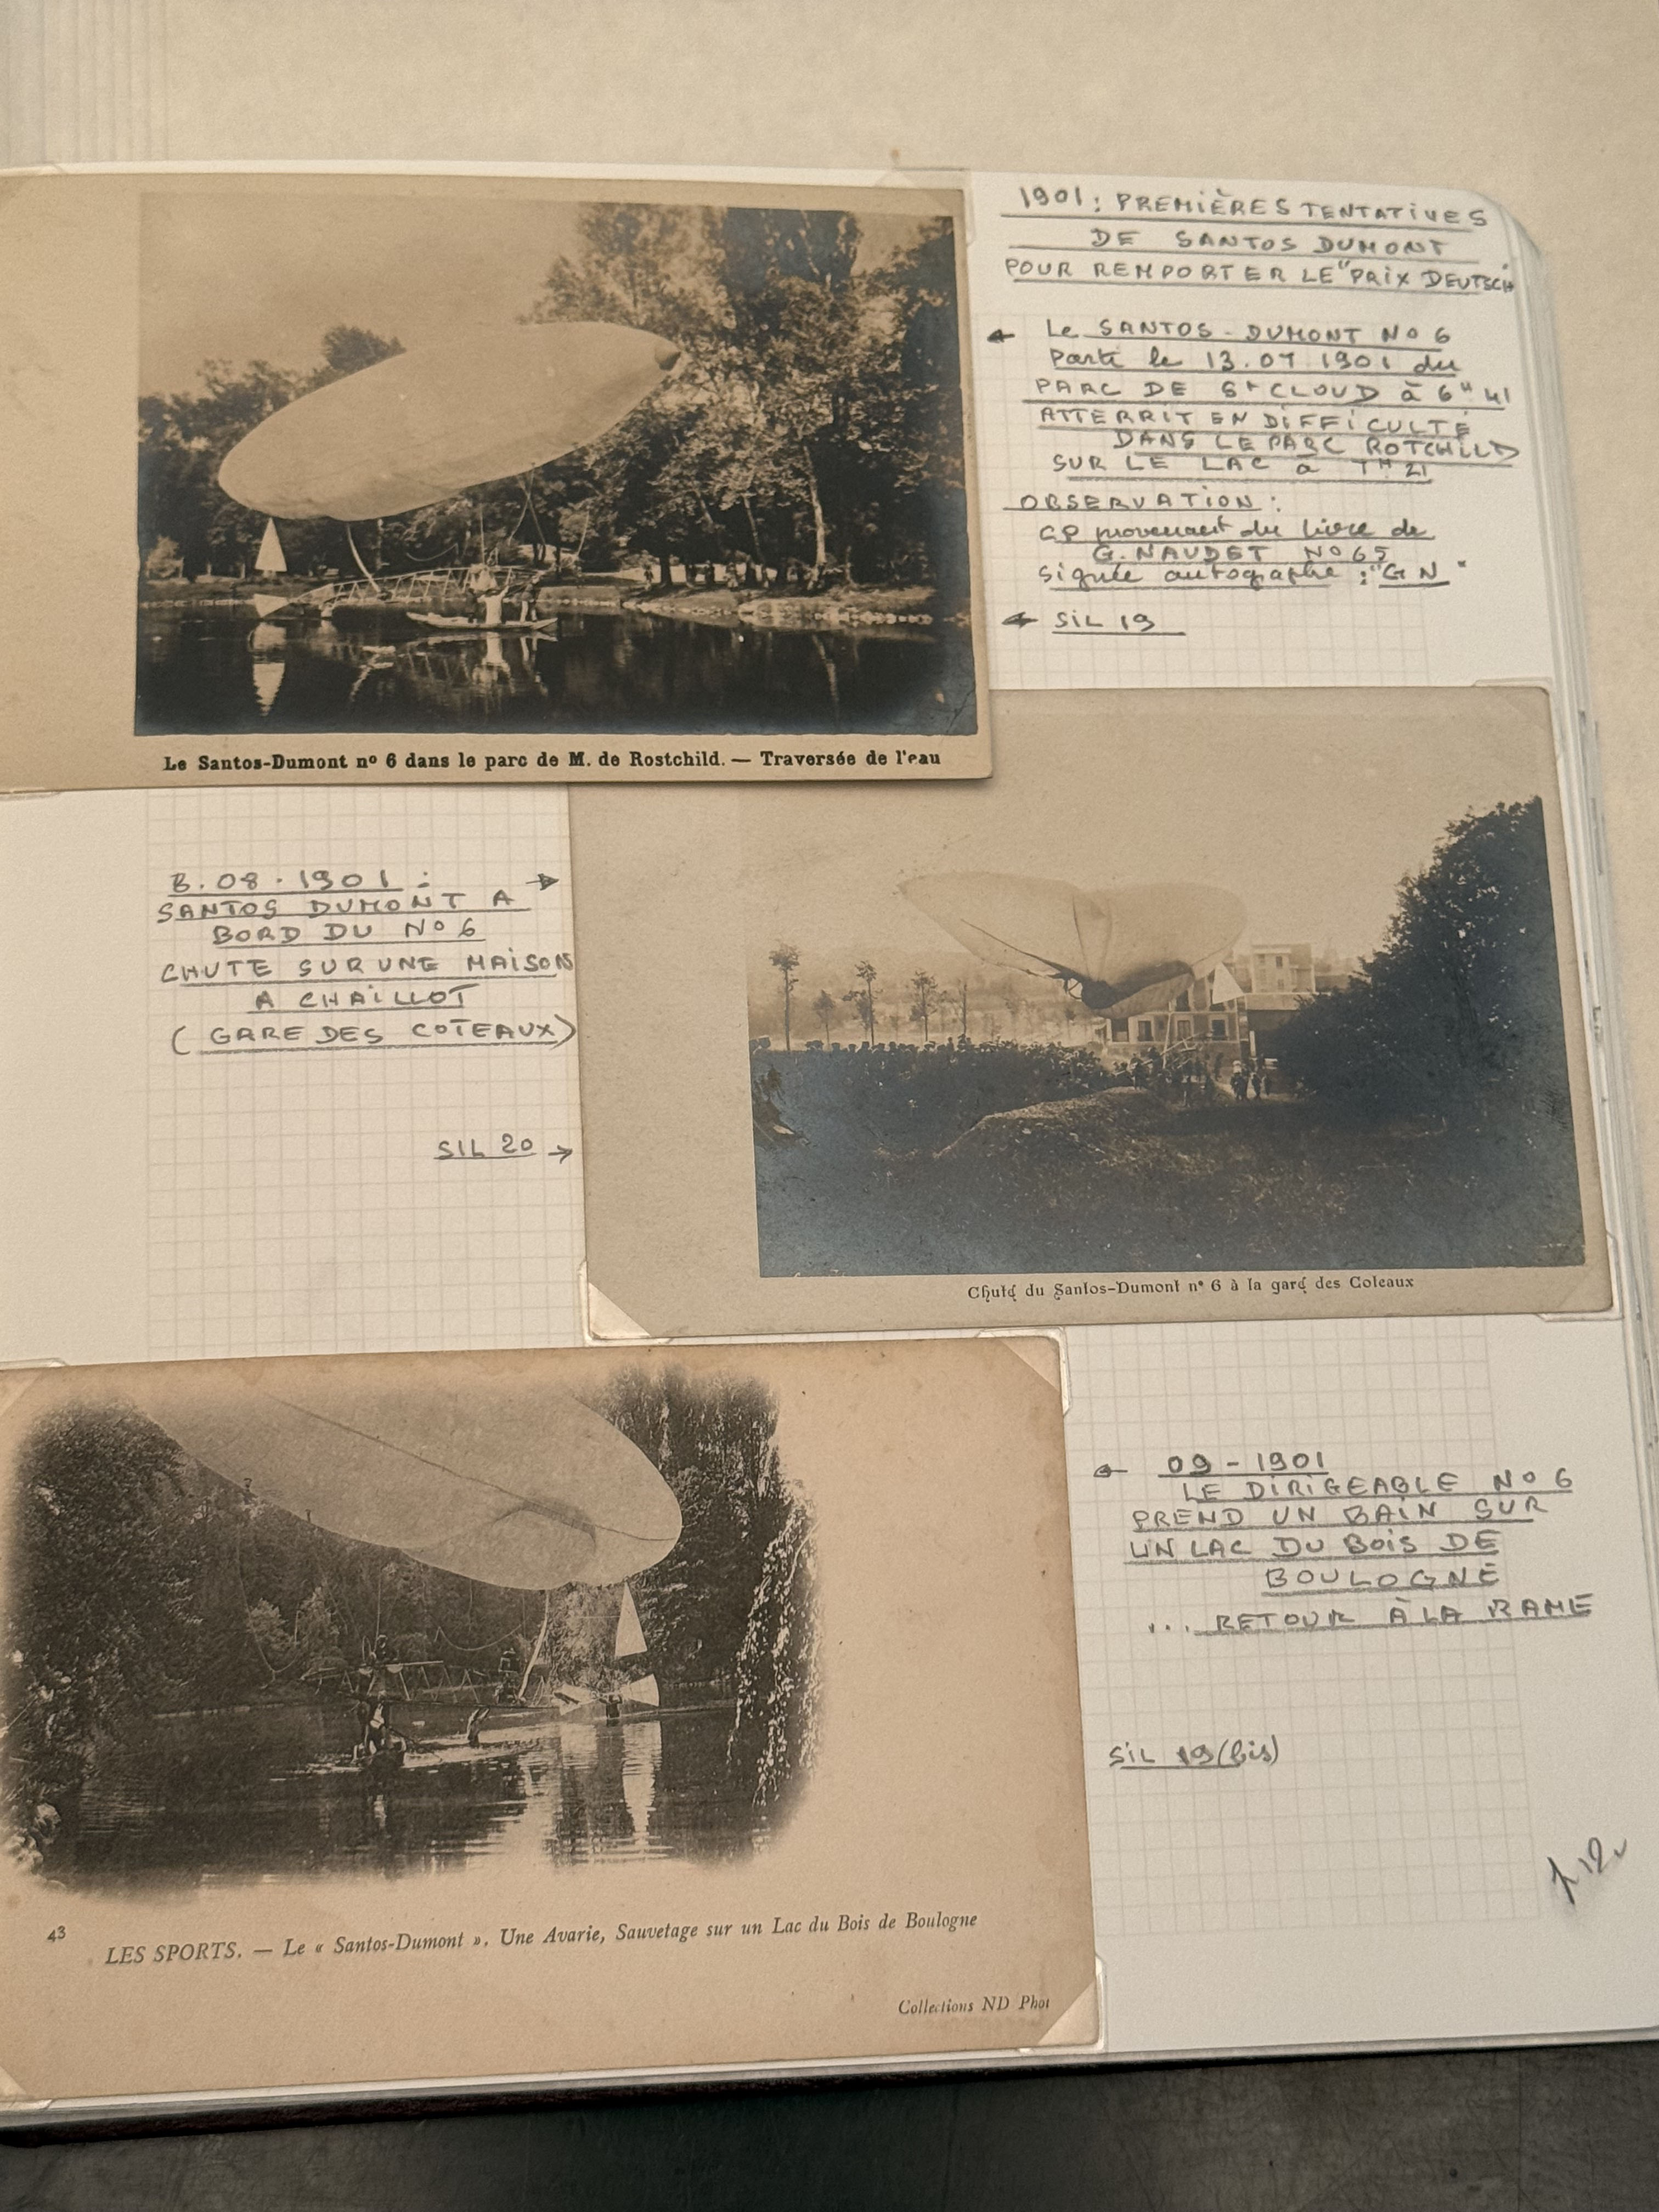 1901: PREMIÈRES TENTATIVES
DE SANTOS DUMONT
POUR REMPORTER LE "PRIX DEUTSCH"
Le SANTOS-DUMONT No 6
Parti le 13.07.1901 du
PARC DE St CLOUD à 6H 41
ATTERRIT EN DIFFICULTÉ
DANS LE PARC ROTCHILD
SUR LE LAC à 7H 21
OBSERVATION :
CP provenant du livre de
G. NAUDET No 65
signée autographe : "GN"
SIL 19
Le Santos-Dumont no 6 dans le parc de M. de Rostchild. — Traversée de l'eau
8.08.1901 :
SANTOS DUMONT A
BORD DU No 6
CHUTE SUR UNE MAISON
A CHAILLOT
( GARE DES COTEAUX)
SIL 20
Chute du Santos-Dumont no 6 à la gare des Coteaux
09-1901
LE DIRIGEABLE No 6
PREND UN BAIN SUR
UN LAC DU BOIS DE
BOULOGNE
... RETOUR À LA RAME
SIL 19 (bis)
43
LES SPORTS. — Le « Santos-Dumont ». Une Avarie, Sauvetage sur un Lac du Bois de Boulogne
Collections ND Phot